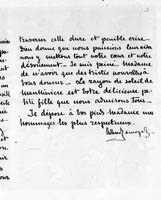 traverser cette dure et pénible crise.
Bien donné que nous puissions leur aider
nous y mettons tout notre cœur et notre
dévouement. Je suis peiné, madame
de n'avoir que des tristes nouvelles à
vous donner. Le rayon de soleil de
est votre délicieuse pe
tite fille que nous admirons tous.
Je dépose à vos pieds madame mes
hommages les plus respectueux.